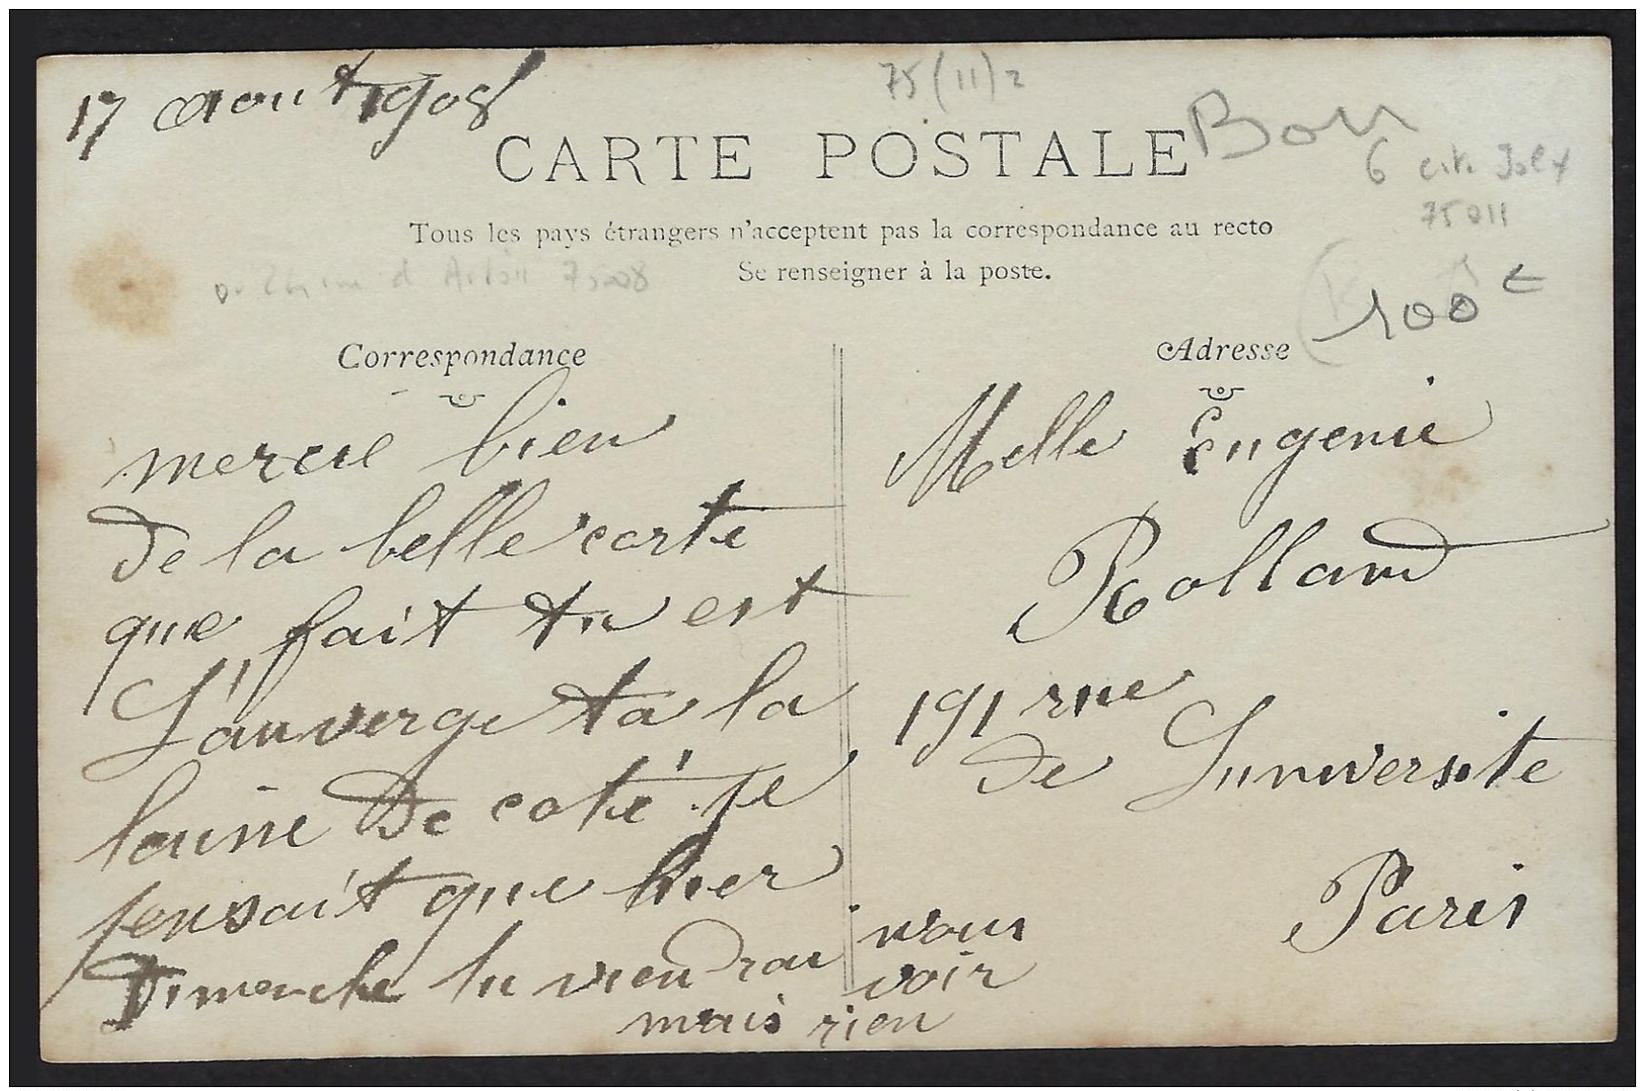 17 aout 1908
75 (11) 2
CARTE POSTALE
Bon
6 cité Joly
75011
Tous les pays étrangers n'acceptent pas la correspondance au recto
Se renseigner à la poste.
75008
100 €
Correspondance
mercie bien
de la belle carte
que fait tu est
L'auverge ta la
laisie de coté je
pensait que hier
Dimanche tu viendrai nous
voir
mais rien
Adresse
Melle Eugenie
Rolland
191 rue
de Luniversite
Paris